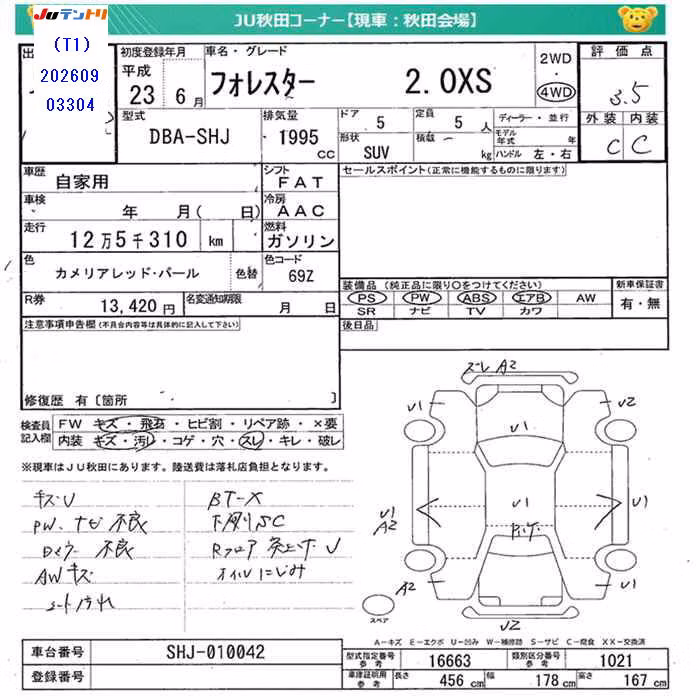 JUテントリ
JU秋田コーナー【現車：秋田会場】
(T1)
202609
03304
初度登録年月
平成
23 6 月
車名・グレード
フォレスター 2.0XS
2WD
・
4WD
評価点
3.5
外装 内装
C C
型式
DBA-SHJ
排気量
1995
cc
ドア 5
形状
SUV
定員 5 人
積載 ー kg
ディーラー・並行
モデル
年式 年
ハンドル 左・右
車歴
自家用
シフト
FAT
車検
年 月( 日)
冷房
AAC
走行
12万5千310 km
燃料
ガソリン
色
カメリアレッド・パール
色替
色コード
69Z
R券
13,420 円
名変通知期限
月 日
セールスポイント(正常に機能するものに限ります)
装備品 (純正品に限り○をつけてください)
PS PW ABS エアB AW
SR ナビ TV カワ
新車保証書
有・無
後日品
注意事項申告欄(不具合内容等は具体的に記入して下さい)
修復歴 有〔箇所
検査員
記入欄
FW キズ・飛石・ヒビ割・リペア跡・×要
内装 キズ・汚レ・コゲ・穴・スレ・キレ・破レ
※現車はJU秋田にあります。陸送費は落札店負担となります。
キズU
PW、ナビ 不良
Dミラー 不良
AWキズ
シート汚れ
BT-X
下廻りSC
Rフロア突上げU
オイルにじみ
ズレ A2
U1
U2
U1
U1
U1
A2
U1
A2
U2
スペア
A-キズ E-エクボ U-凹み W-補修跡 S-サビ C-腐食 XX-交換済
車台番号
SHJ-010042
登録番号
型式指定番号
参考
16663
類別区分番号
参考
1021
車庫証明用
参考
長さ 456 cm
幅 178 cm
高さ 167 cm